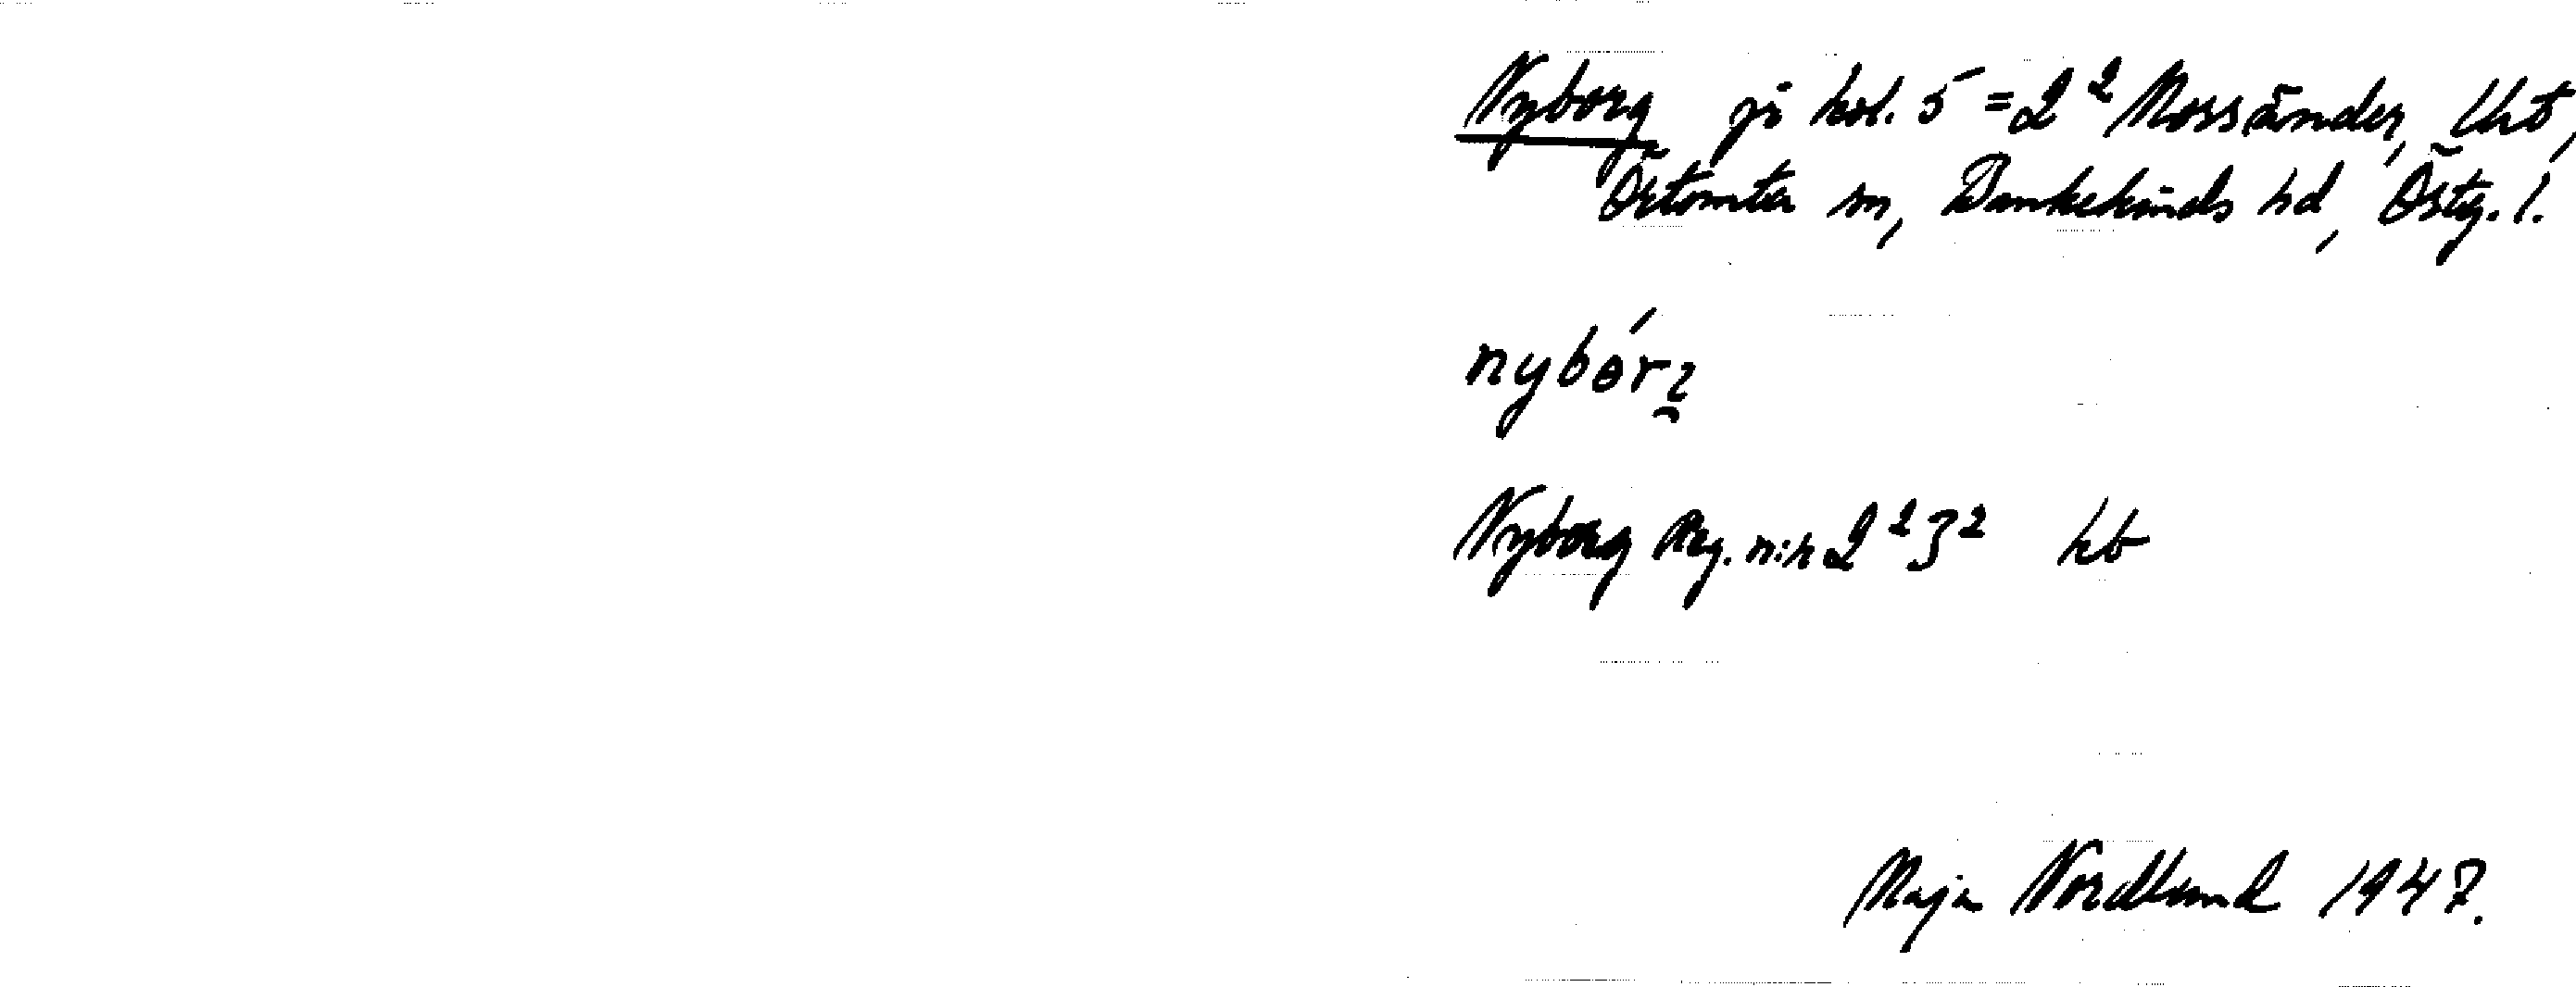 Nyborg på kol. 5 = 2² Mossänder, Uht,
Östomta sn, Bankekinds hd, Östg. l.
nybór
Nyborg Reg. n:r 2² 3² kb
Maja Nordlund 1947.